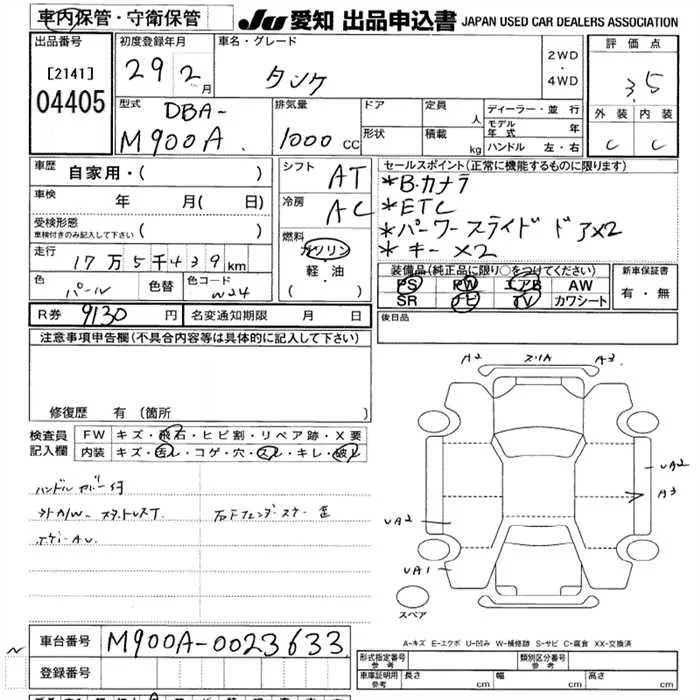 車内保管・守衛保管
JU 愛知 出品申込書 JAPAN USED CAR DEALERS ASSOCIATION
出品番号
[2141]
04405
初度登録年月
29 2月
車名・グレード
タンク
2WD
・
4WD
評価点
3.5
外装 内装
C C
型式
DBA-
M900A
排気量
1000 CC
ドア
形状
定員
人
積載
kg
ディーラー・並行
モデル年式 年
ハンドル 左・右
車歴 自家用・( )
車検 年 月( 日)
受検形態
車検付きのみ記入して下さい ( )
走行
17万5千439km
色 パール 色替 色コード W24
シフト AT
冷房 AC
燃料
ガソリン
軽・油
( ・ )
セールスポイント(正常に機能するものに限ります)
*B.カメラ
*ETC
*パーワースライドドア×2
*キー×2
装備品(純正品に限り○をつけてください)
PS PW エアB AW
SR ナビ TV カワシート
新車保証書
有・無
R券 9130 円 名変通知期限 月 日
後日品
注意事項申告欄(不具合内容等は具体的に記入して下さい)
修復歴 有(箇所 )
検査員
記入欄
FW キズ・飛石・ヒビ割・リペア跡・X要
内装 キズ・汚レ・コゲ・穴・スレ・キレ・破レ
ハンドルカバー付
A2 スリA A3
UA2
A3
UA2
UA1
スペア
A-キズ E-エクボ U-凹み W-補修跡 S-サビ C-腐食 XX-交換済
車台番号 M900A-0023633
登録番号
形式指定番号
参考
類別区分番号
参考
車庫証明用
参考
長さ cm 幅 cm 高さ cm